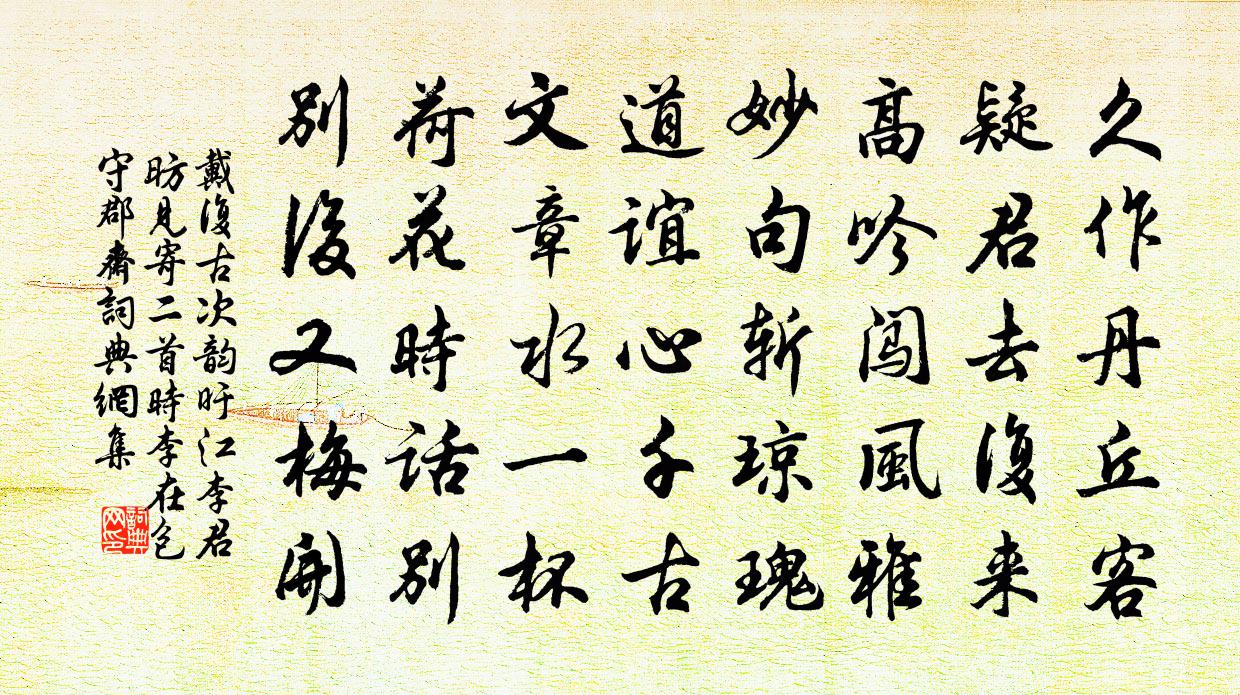 久作丹丘客
疑君去復来
高吟闖風雅
妙句斬琼瑰
道誼心千古
文章水一杯
荷花時話別
別後又梅開
戴復古次韵盱江李君
昉見寄二首時李在包
守郡齋詞典網集
詞典网印